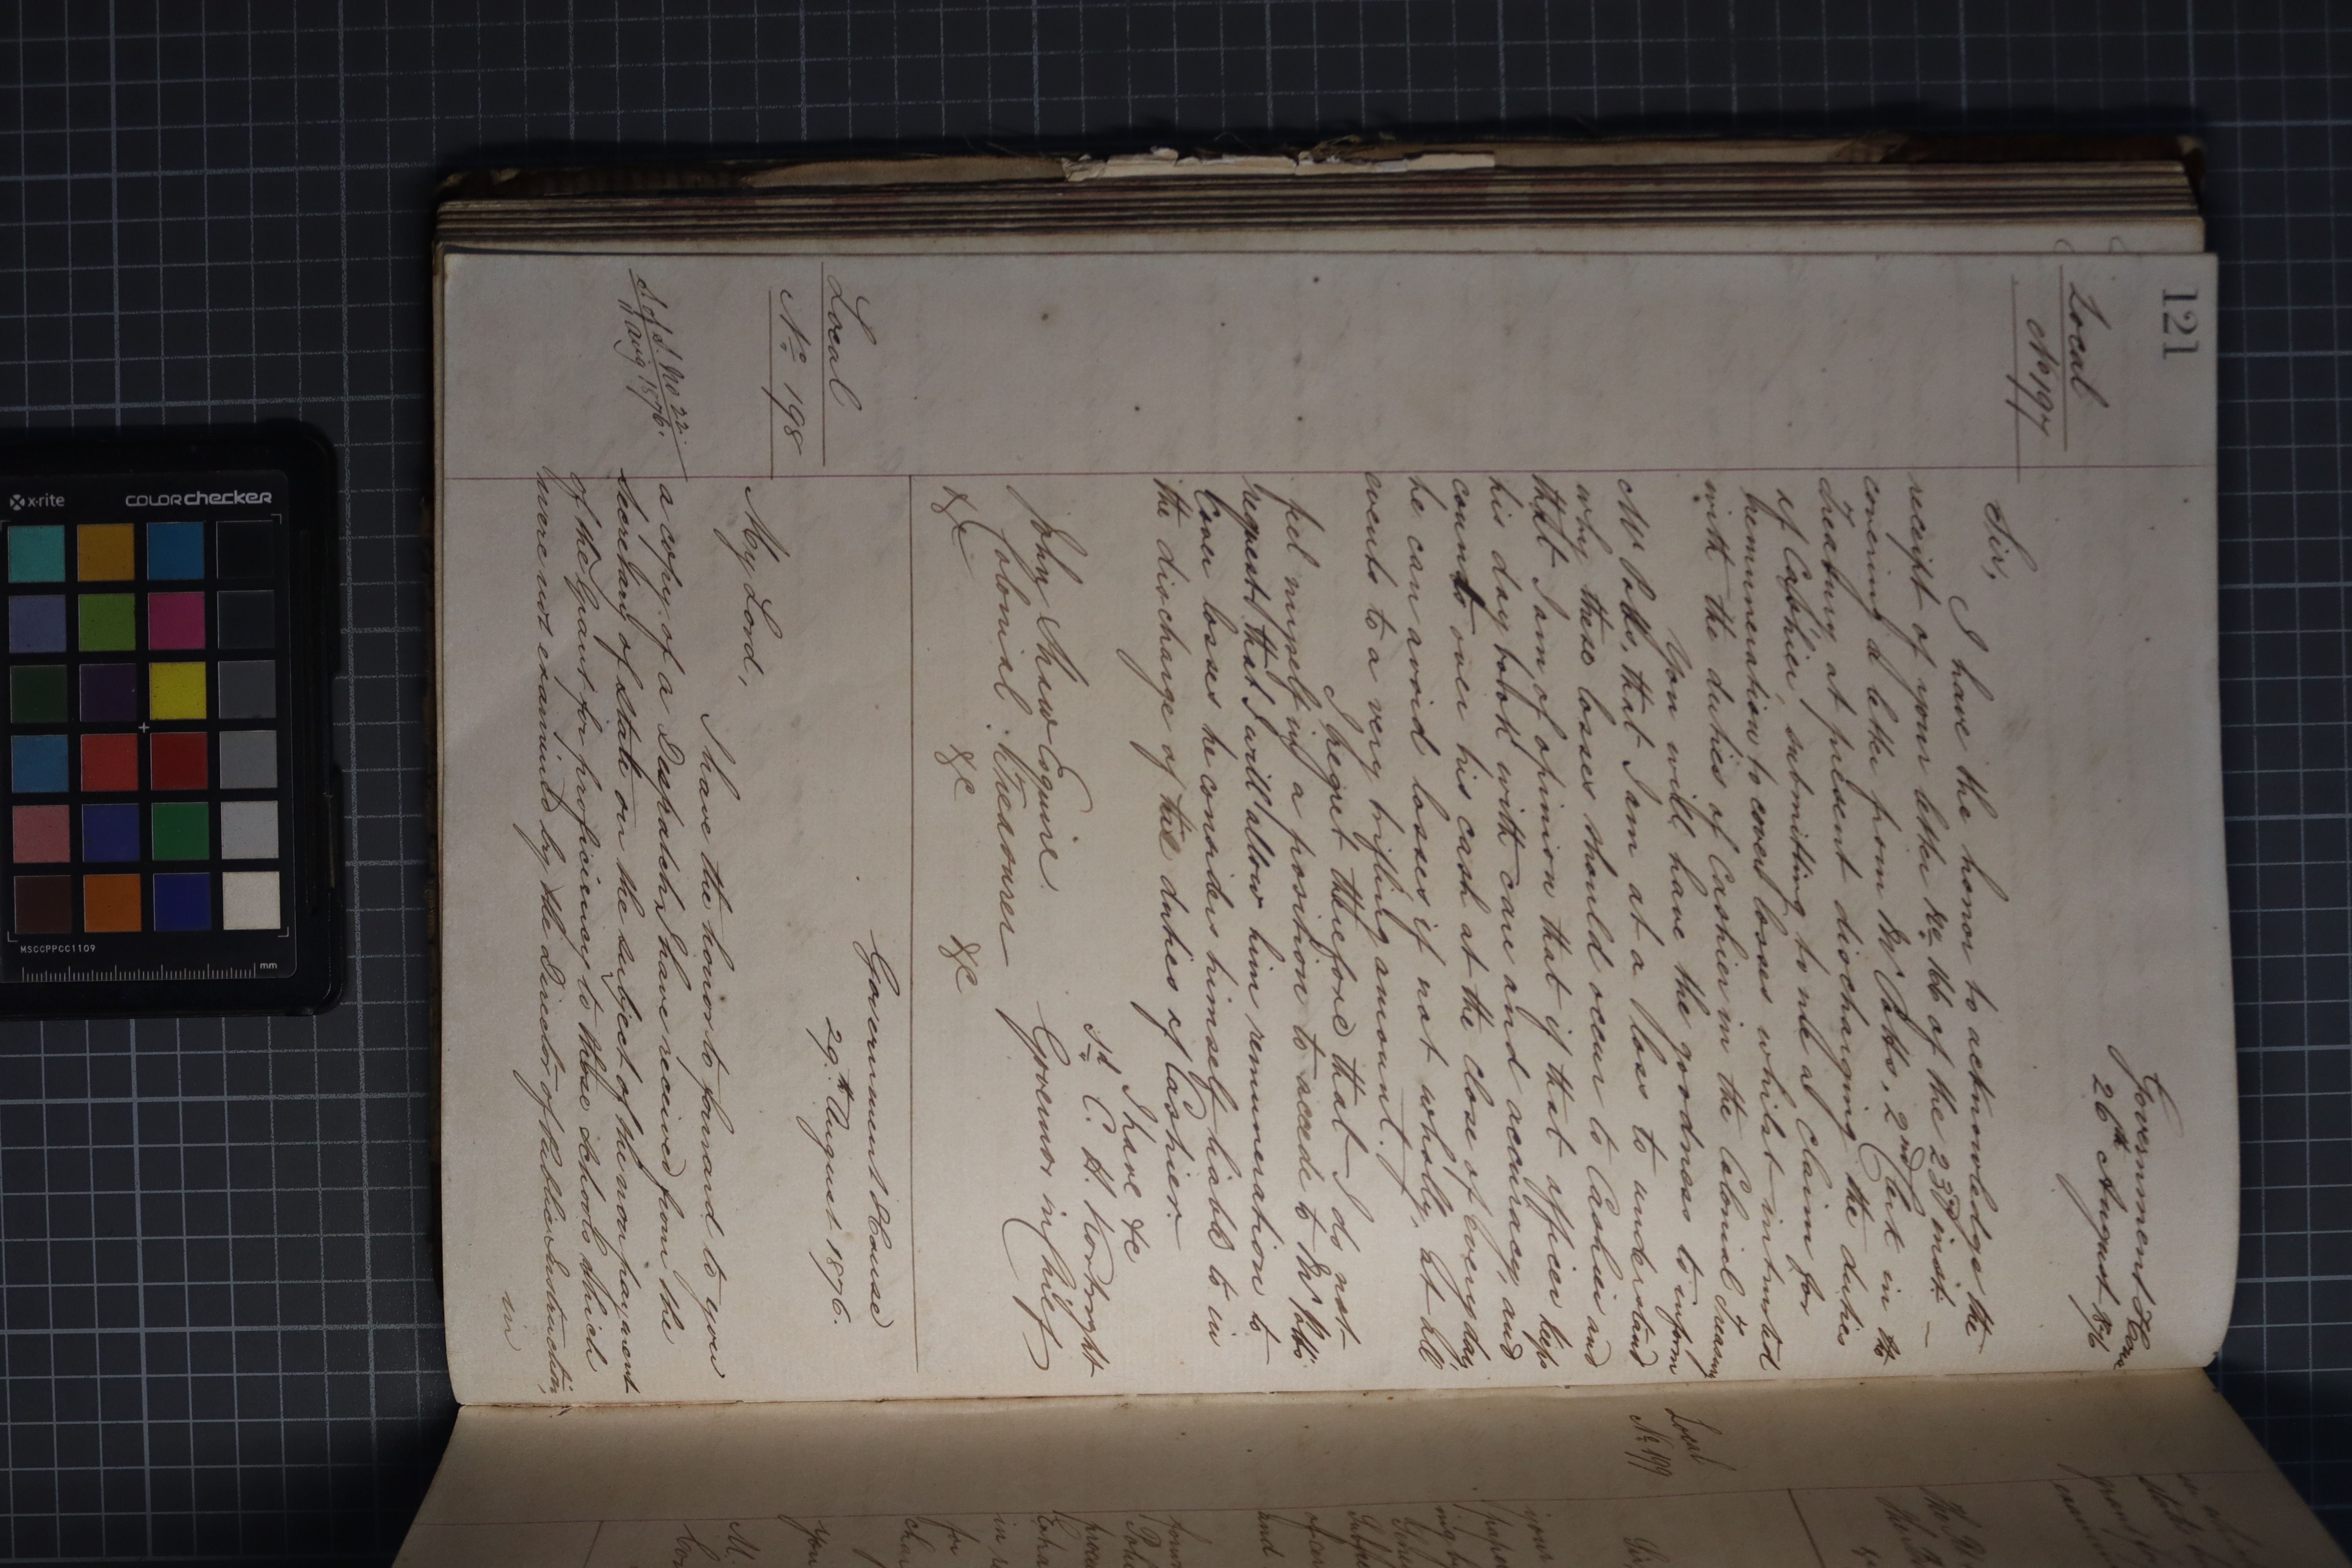 121
Local
No 197
Government House
26th August 1876
Sir,
I have the honor to acknowledge the
receipt of your letter No. 166 of the 23rd inst. —
covering a letter from Mr Potts, 2nd Clerk in the
Treasury at present discharging the duties
of Cashier, submitting to me a claim for
remuneration to cover losses whilst intrusted
with the duties of Cashier in the Colonial Treasury
You will have the goodness to inform
Mr Potts, that I am at a loss to understand
why these losses should occur to Cashier and
that I am of opinion that if that officer keeps
his day book with care and accuracy, and
counts over his cash at the close of every day
he can avoid losses if not wholly, at all
events to a very trifling amount.
I regret therefore that I do not
feel myself in a position to accede to Mr Potts'
request that I will allow him remuneration to
cover losses he considers himself liable to in
the discharge of the duties of Cashier.
I have &c
Sd C. H. Kortright
Governor in Chief
John Shaw Esquire
Colonial Treasurer
&c &c &c
Local
No. 198
Government House
29th August 1876.
My Lord,
S of S. No 22.
11 Aug 1876.
I have the honor to forward to you
a copy of a Despatch I have received from the
Secretary of State on the subject of the non payment
of the Grant for proficiency to those schools which
were not examined by the Director of Public Instruction,
in
Local
No 199